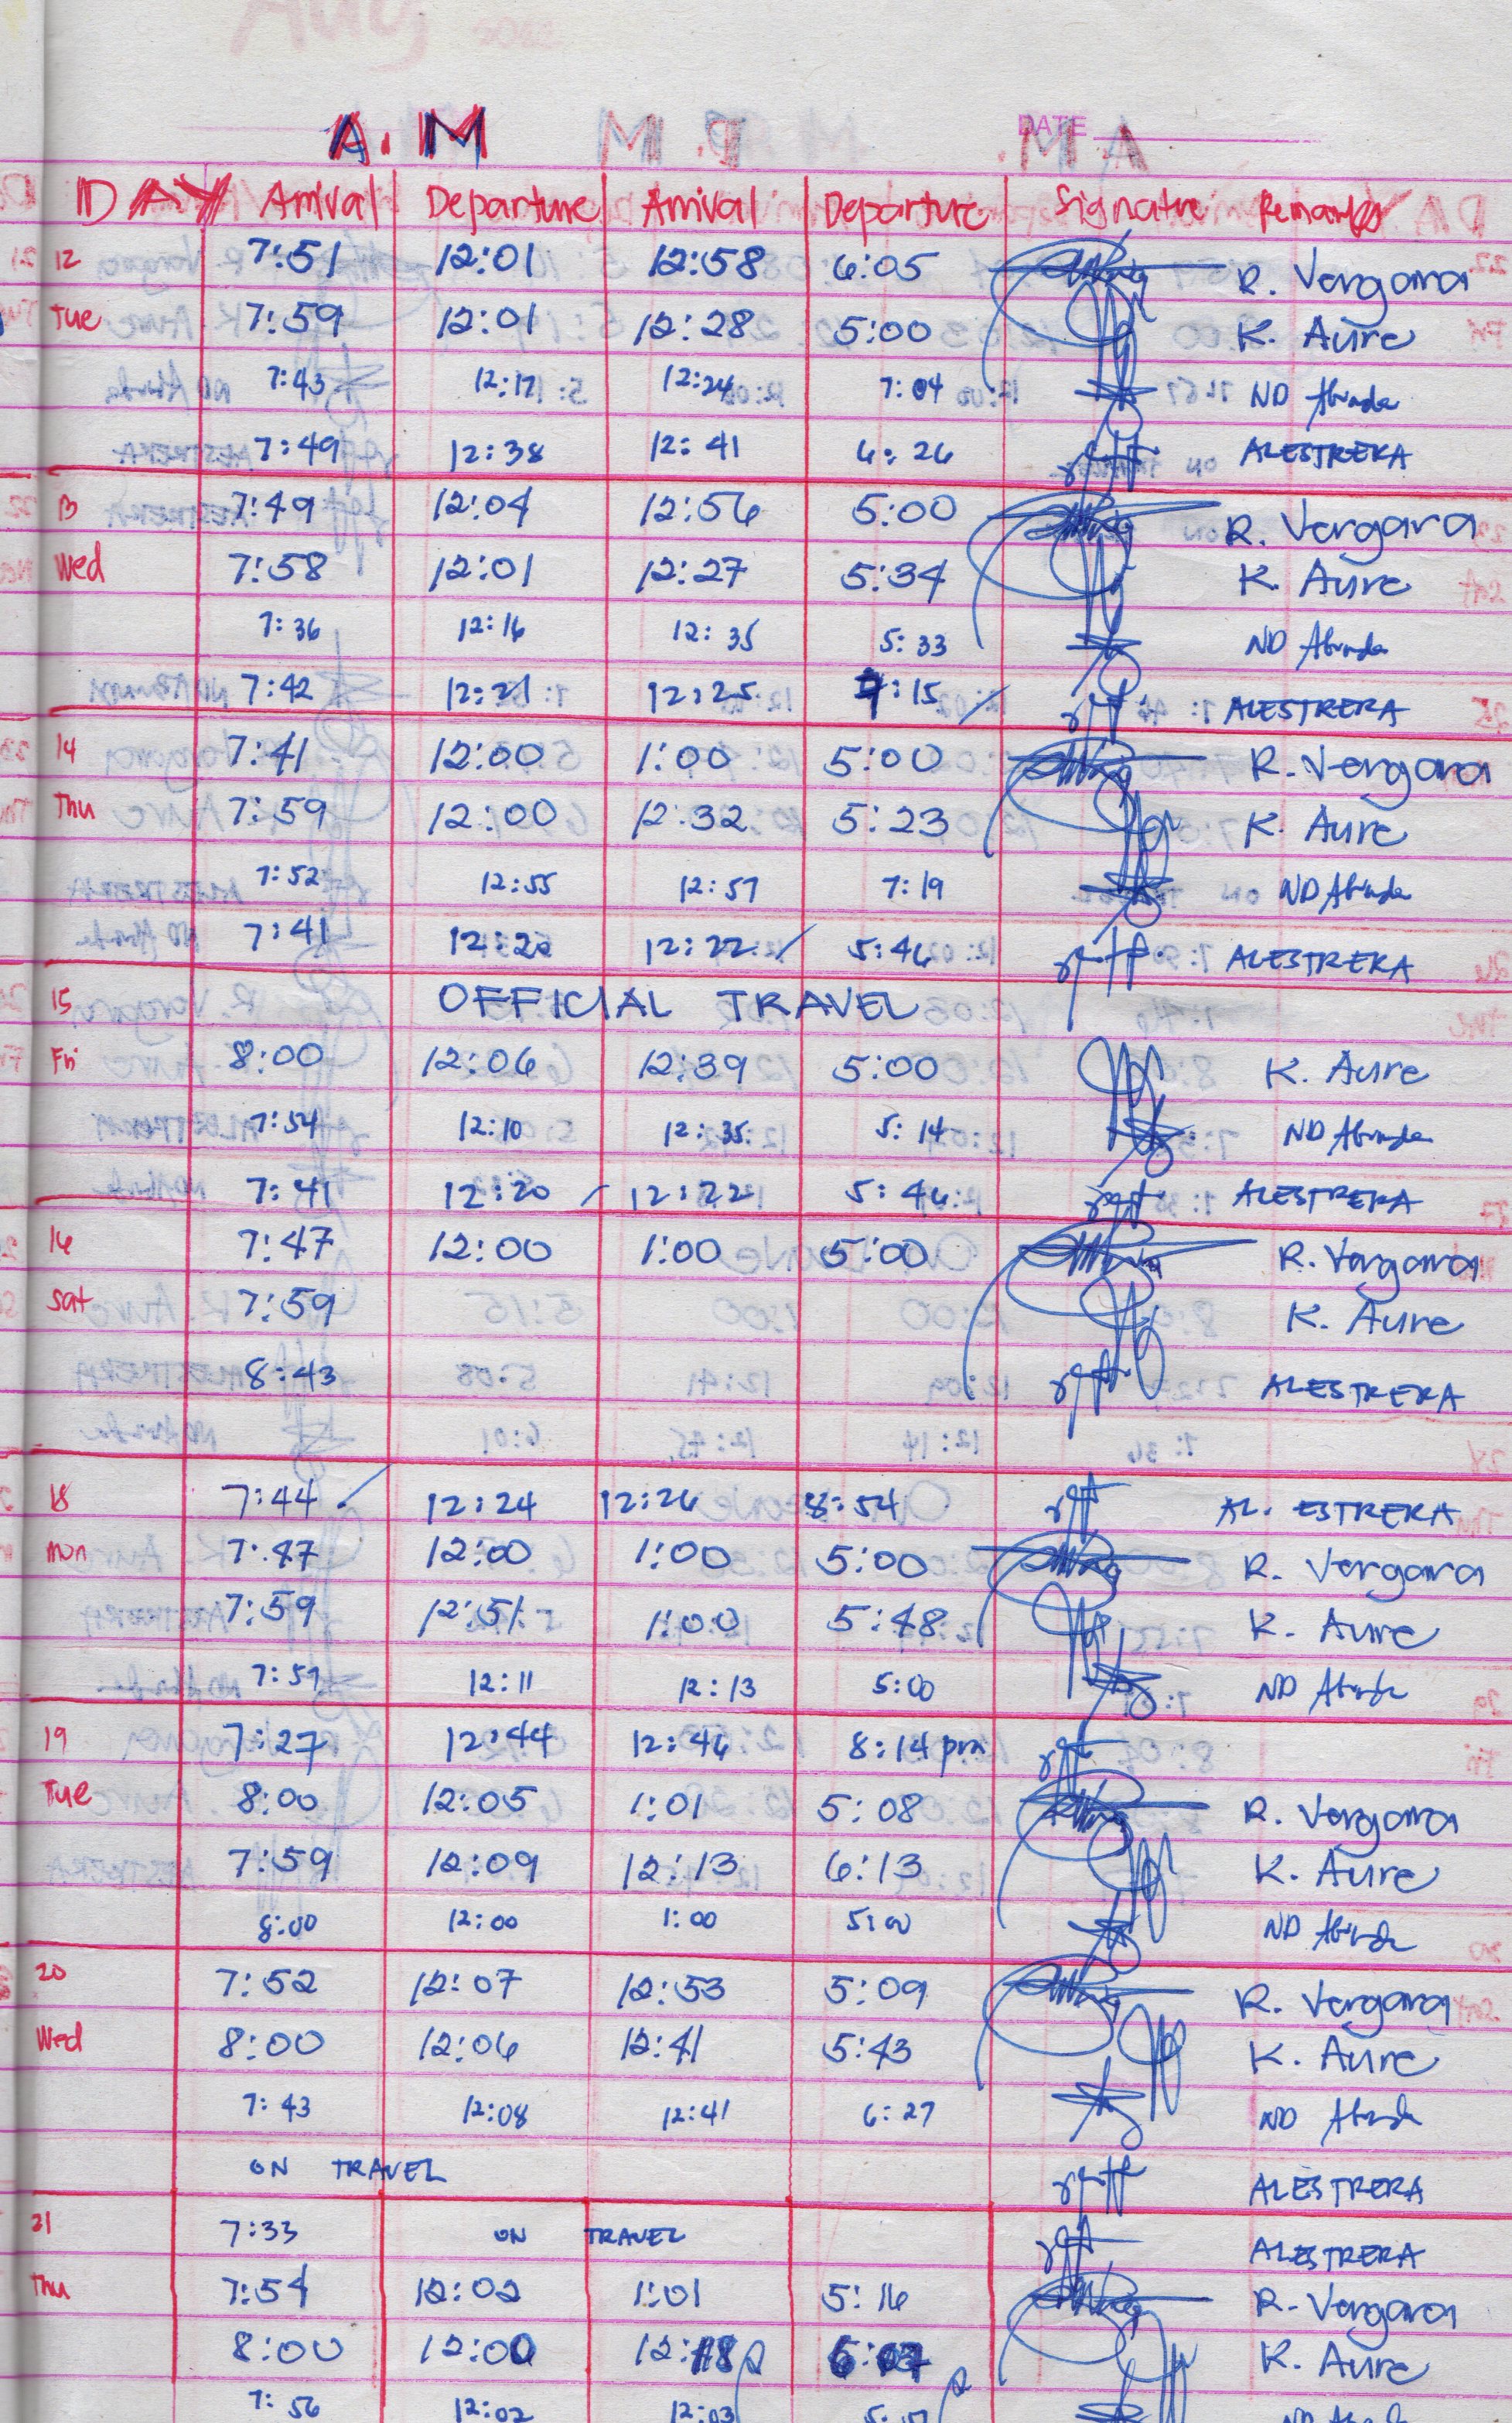 A.M
DATE
DAY Arrival Departure Arrival Departure Signature Remarks
12 7:51 12:01 12:58 6:05 R. Vergara
Tue 7:59 12:01 12:28 5:00 K. Aure
7:43 12:17 12:24 7:04 ND Abunda
7:49 12:38 12:41 6:26 ALESTRERA
13 7:49 12:04 12:56 5:00 R. Vergara
Wed 7:58 12:01 12:27 5:34 K. Aure
7:36 12:16 12:35 5:33 ND Abunda
7:42 12:21 12:25 7:15 ALESTRERA
14 7:41 12:00 1:00 5:00 R. Vergara
Thu 7:59 12:00 12:32 5:23 K. Aure
7:52 12:55 12:57 7:19 ND Abunda
7:41 12:20 12:22 5:46 ALESTRERA
15 OFFICIAL TRAVEL
Fri 8:00 12:06 12:39 5:00 K. Aure
7:54 12:10 12:35 5:14 ND Abunda
7:41 12:20 12:22 5:46 ALESTRERA
16 7:47 12:00 1:00 5:00 R. Vergara
Sat 7:59 K. Aure
8:43 ALESTRERA
18 7:44 12:24 12:26 8:54 AL. ESTRERA
mon 7:47 12:00 1:00 5:00 R. Vergara
7:59 12:51 1:00 5:48 K. Aure
7:57 12:11 12:13 5:00 ND Abunda
19 7:27 12:44 12:46 8:14 pm
Tue 8:00 12:05 1:01 5:08 R. Vergara
7:59 12:09 12:13 6:13 K. Aure
8:00 12:00 1:00 5:00 ND Abunda
20 7:52 12:07 12:53 5:09 R. Vergara
Wed 8:00 12:06 12:41 5:43 K. Aure
7:43 12:08 12:41 6:27 ND Abunda
ON TRAVEL ALESTRERA
21 7:33 ON TRAVEL ALESTRERA
Thu 7:54 12:02 1:01 5:16 R. Vergara
8:00 12:00 12:18 K. Aure
7:56 12:02 12:03